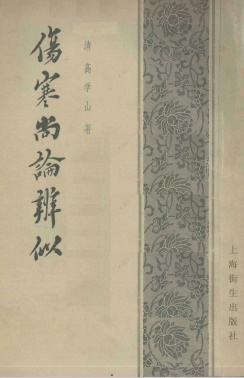 傷寒尚論辨似
清 高学山 著
上海衛生出版社